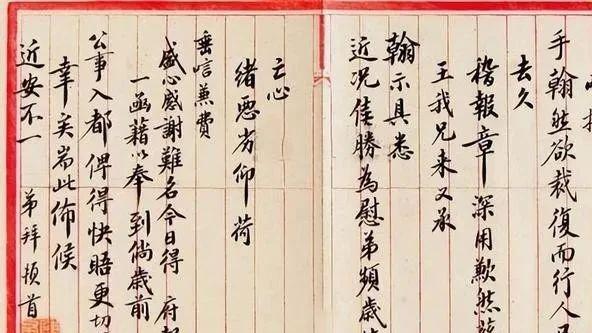 手翰然欲裁復而行人
去久
稽報章深用歉然
王我兄来又承
翰示具悉
近况佳勝為慰弟頻歲
亡心
緒惡劣仰荷
垂唁兼費
盛心感謝難名今日得 府
一函藉以奉到倘歲前
公事入都俾得快晤更切
幸矣耑此佈候
近安不一 弟拜頓首